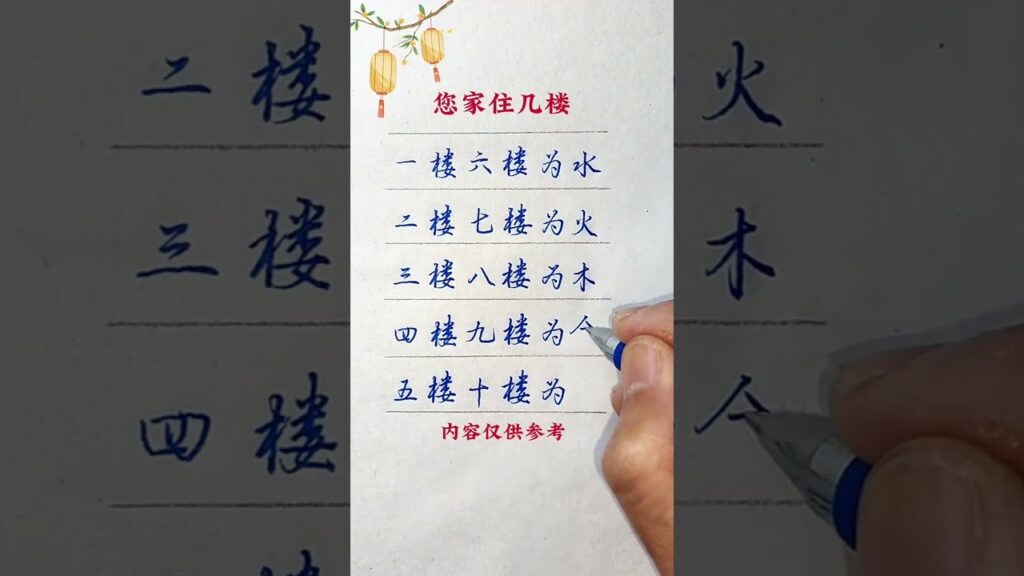 您家住几楼
一楼六楼为水
二楼七楼为火
三楼八楼为木
四楼九楼为
五楼十楼为
内容仅供参考